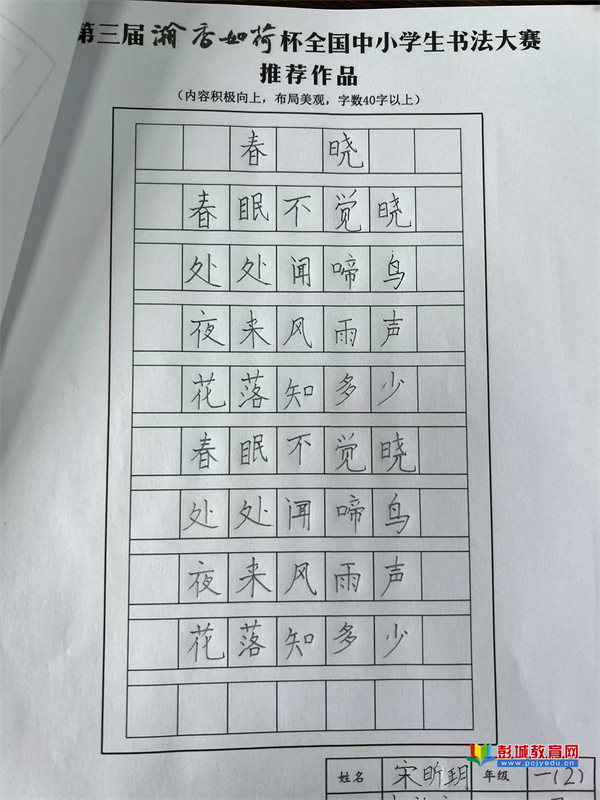 第三届瀚香如荷杯全国中小学生书法大赛
推荐作品
（内容积极向上，布局美观，字数40字以上）
春 晓
春眠不觉晓
处处闻啼鸟
夜来风雨声
花落知多少
春眠不觉晓
处处闻啼鸟
夜来风雨声
花落知多少
彭城教育网
www.pcjyedu.cn
姓名 宋昕玥 年级 一(2)